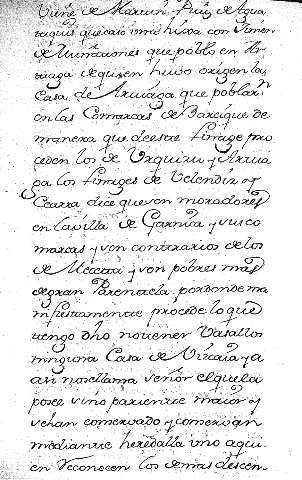 viene de Martin Ruiz de Agua
que caso una hixsa con Ximen
de que poblo en Ar
teaga de quien hubo origen la
Casa de Arteaga, que poblar
en las Comarcas de de
manera que de este linage pro
ceden los de Urquizu y Artea
ga los linages de Velendiz
Cearra dice que son moradores
en la villa de Garnica y sus co
marcas y son contrarios de los
de Meceta y son pobres mas
de gran Parentela, por donde ma
nifiestamente procede lo que
tengo dho no tener Vasallos
ninguna Casa de Vizcaia y a
asi nosellama señor el que la
posee sino pariente maior y
sehan conservado y conservan
mediante heredalla uno a qui
en reconocen los demas descen